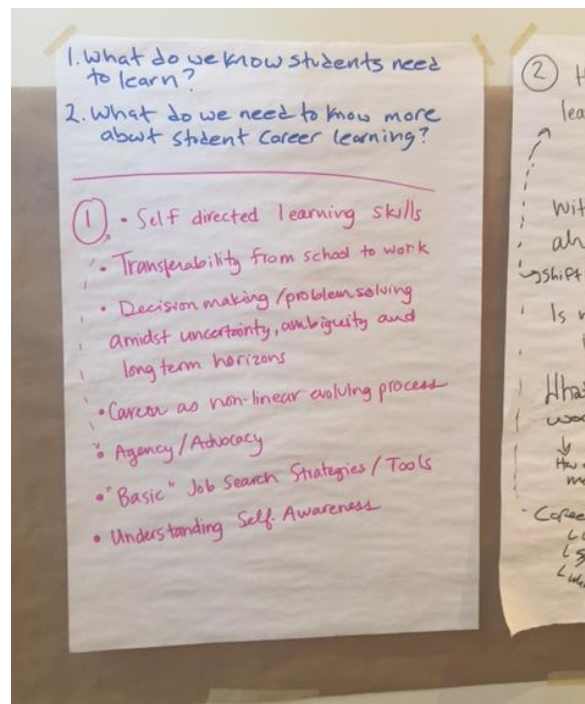 1. What do we know students need
to learn?
2. What do we need to know more
about student career learning?
1 • Self directed learning skills
• Transferability from school to work
• Decision making / problem solving
amidst uncertainty, ambiguity and
long term horizons
• Career as non-linear evolving process
• Agency / Advocacy
• "Basic" Job Search Strategies / Tools
• Understanding Self-Awareness
2
shift
Is